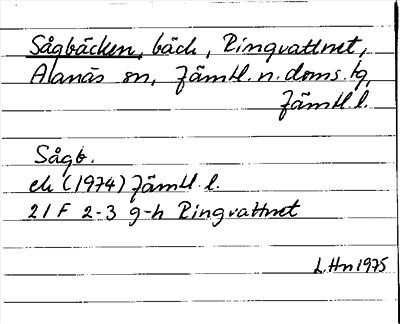 Sågbäcken, bäck, Ringvattnet,
Alanäs sn, Jämtl. n. doms.tg,
Jämtl. l.
Sågb.
ek (1974) Jämtl. l.
21 F 2-3 g-h Ringvattnet
L.Hn 1975